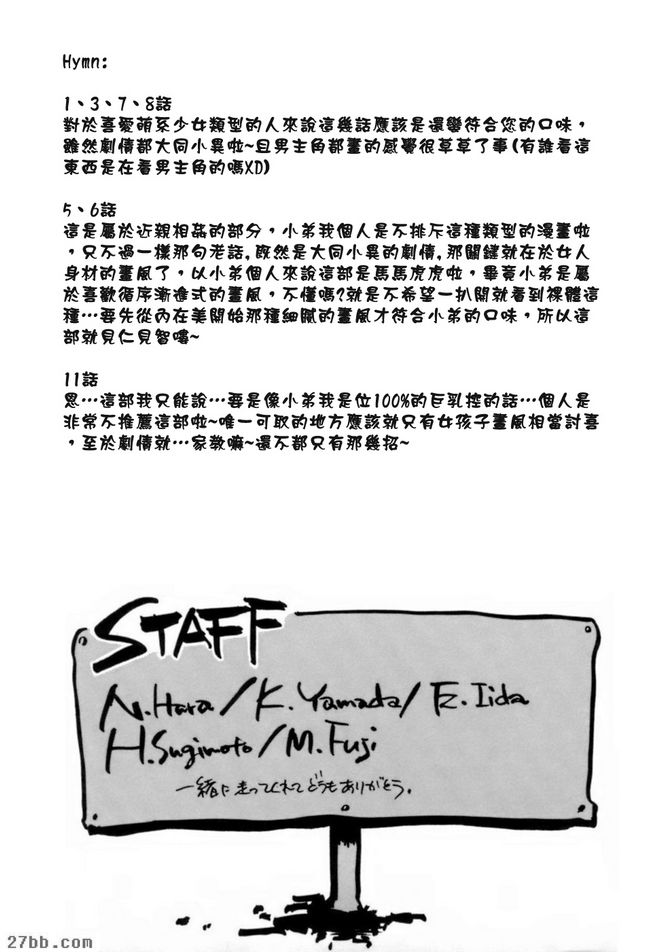 Hymn:
1、3、7、8話
對於喜愛萌系少女類型的人來說這幾話應該是還蠻符合您的口味，
雖然劇情都大同小異啦~且男主角都畫的感覺很草草了事(有誰看這
東西是在看男主角的嗎XD)
5、6話
這是屬於近親相姦的部分，小弟我個人是不排斥這種類型的漫畫啦
，只不過一樣那句老話,既然是大同小異的劇情,那關鍵就在於女人
身材的畫風了，以小弟個人來說這部是馬馬虎虎啦，畢竟小弟是屬
於喜歡循序漸進式的畫風，不懂嗎?就是不希望一扒開就看到裸體這
種…要先從內在美開始那種細膩的畫風才符合小弟的口味，所以這
部就見仁見智嘍~
11話
恩…這部我只能說…要是像小弟我是位100%的巨乳控的話…個人是
非常不推薦這部啦~唯一可取的地方應該就只有女孩子畫風相當討喜
，至於劇情就…家教嘛~還不都只有那幾招~
STAFF
N.Hara/K.Yamada/E.Iida
H.Sugimoto/M.Fuji
一緒に走ってくれてどうもありがとう。
27bb.com